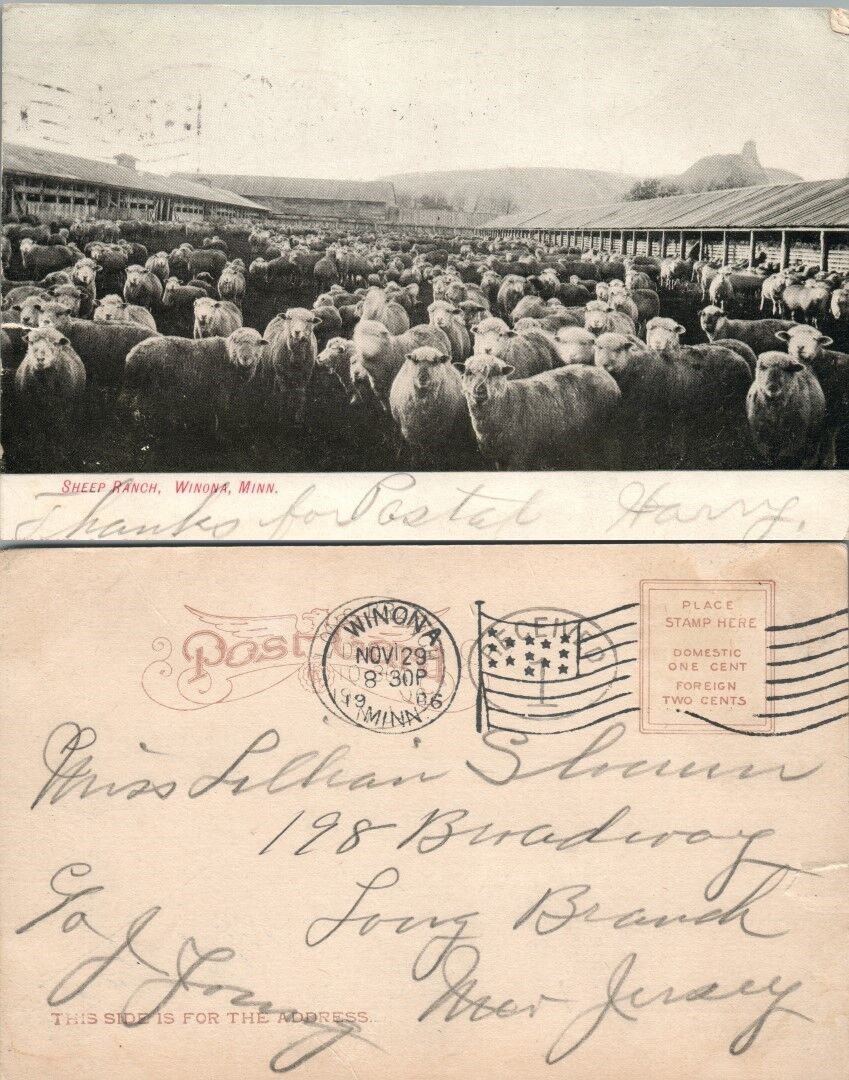 SHEEP RANCH, WINONA, MINN.
Thanks for Postal Harry.
Post Card
WINONA
NOV 29
8 30P
1906
MINN.
RECEIVED
1
PLACE
STAMP HERE
DOMESTIC
ONE CENT
FOREIGN
TWO CENTS
Miss Lillian Slocum
198 Broadway
Long Branch
New Jersey
℅ J. Young
THIS SIDE IS FOR THE ADDRESS.